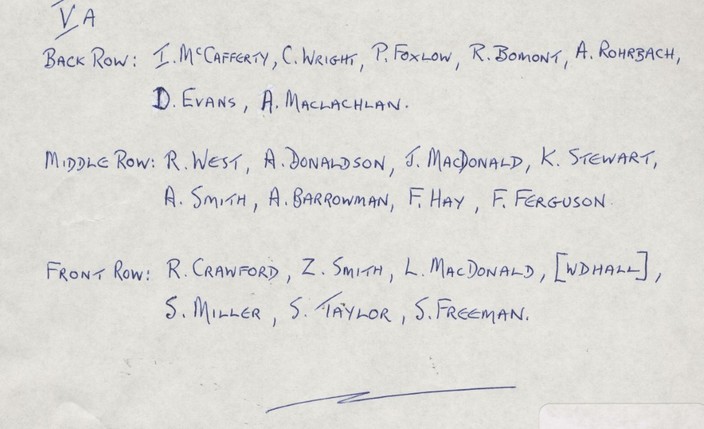 V A
BACK ROW: I. McCAFFERTY, C. WRIGHT, P. FOXLOW, R. BOMONT, A. ROHRBACH,
D. EVANS, A. MACLACHLAN.
MIDDLE ROW: R. WEST, A. DONALDSON, J. MACDONALD, K. STEWART,
A. SMITH, A. BARROWMAN, F. HAY, F. FERGUSON.
FRONT ROW: R. CRAWFORD, Z. SMITH, L. MACDONALD, [WDHALL],
S. MILLER, S. TAYLOR, S. FREEMAN.